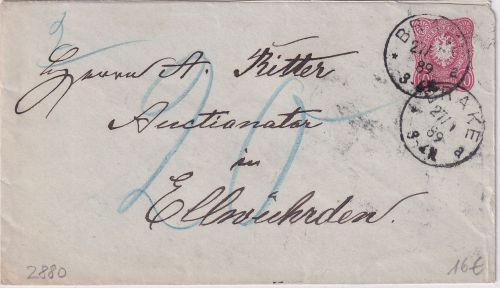 Herrn A. Ritter
Auctionator
in
Ellwührden.
20
BRAKE
27/1
89
8-9N
a
2880
16€